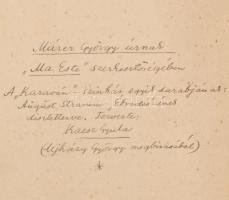 Márer György úrnak
"Ma Este" szerkesztőségében
A "Karaván"-színház egyik darabjának:
August Stramm,
díszletterve. Tervezte:
Kaesz Gyula
(Ujházy György megbízásából)
*